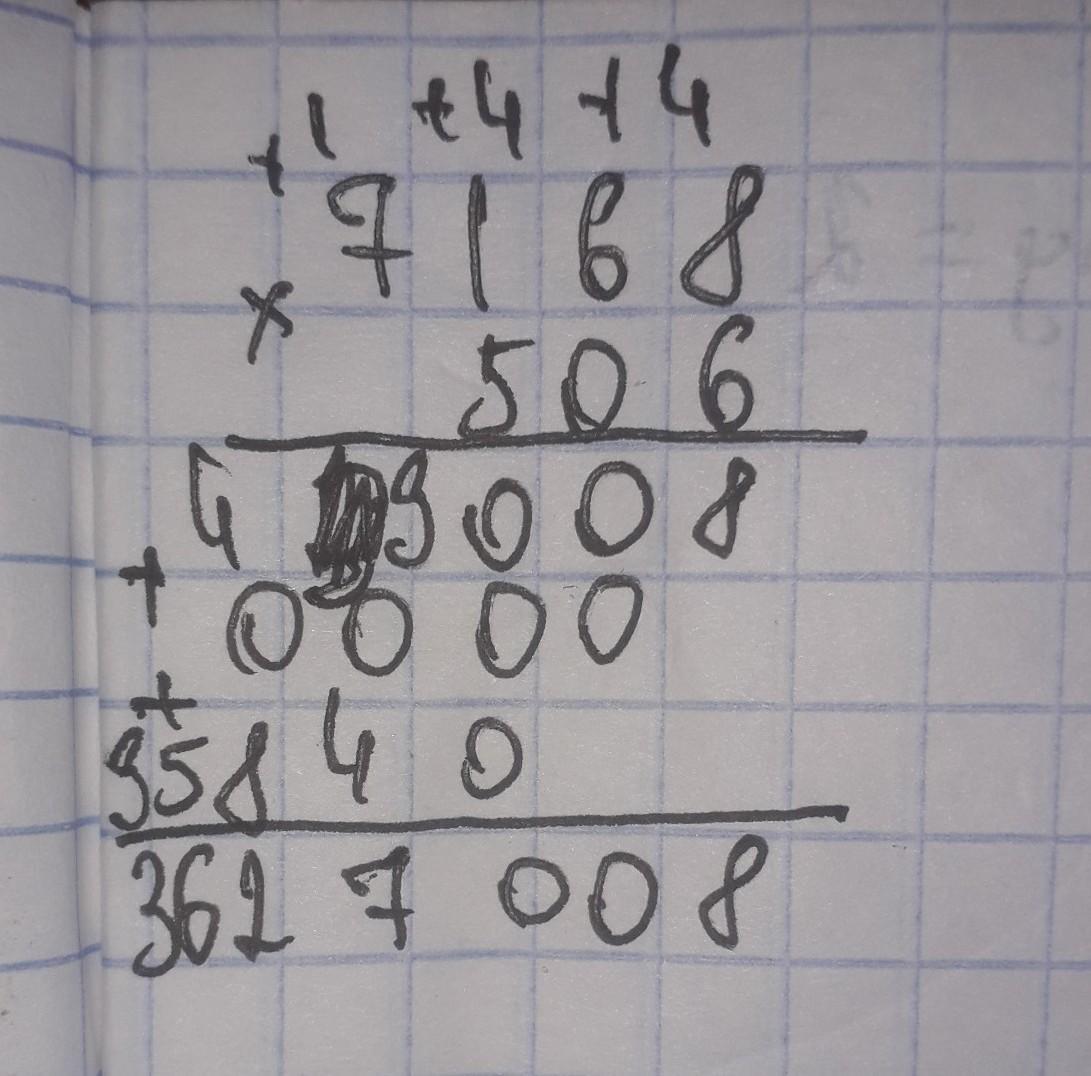 +1 +4 +4
7168
×
506
43008
+
0000
+
35840
3627008